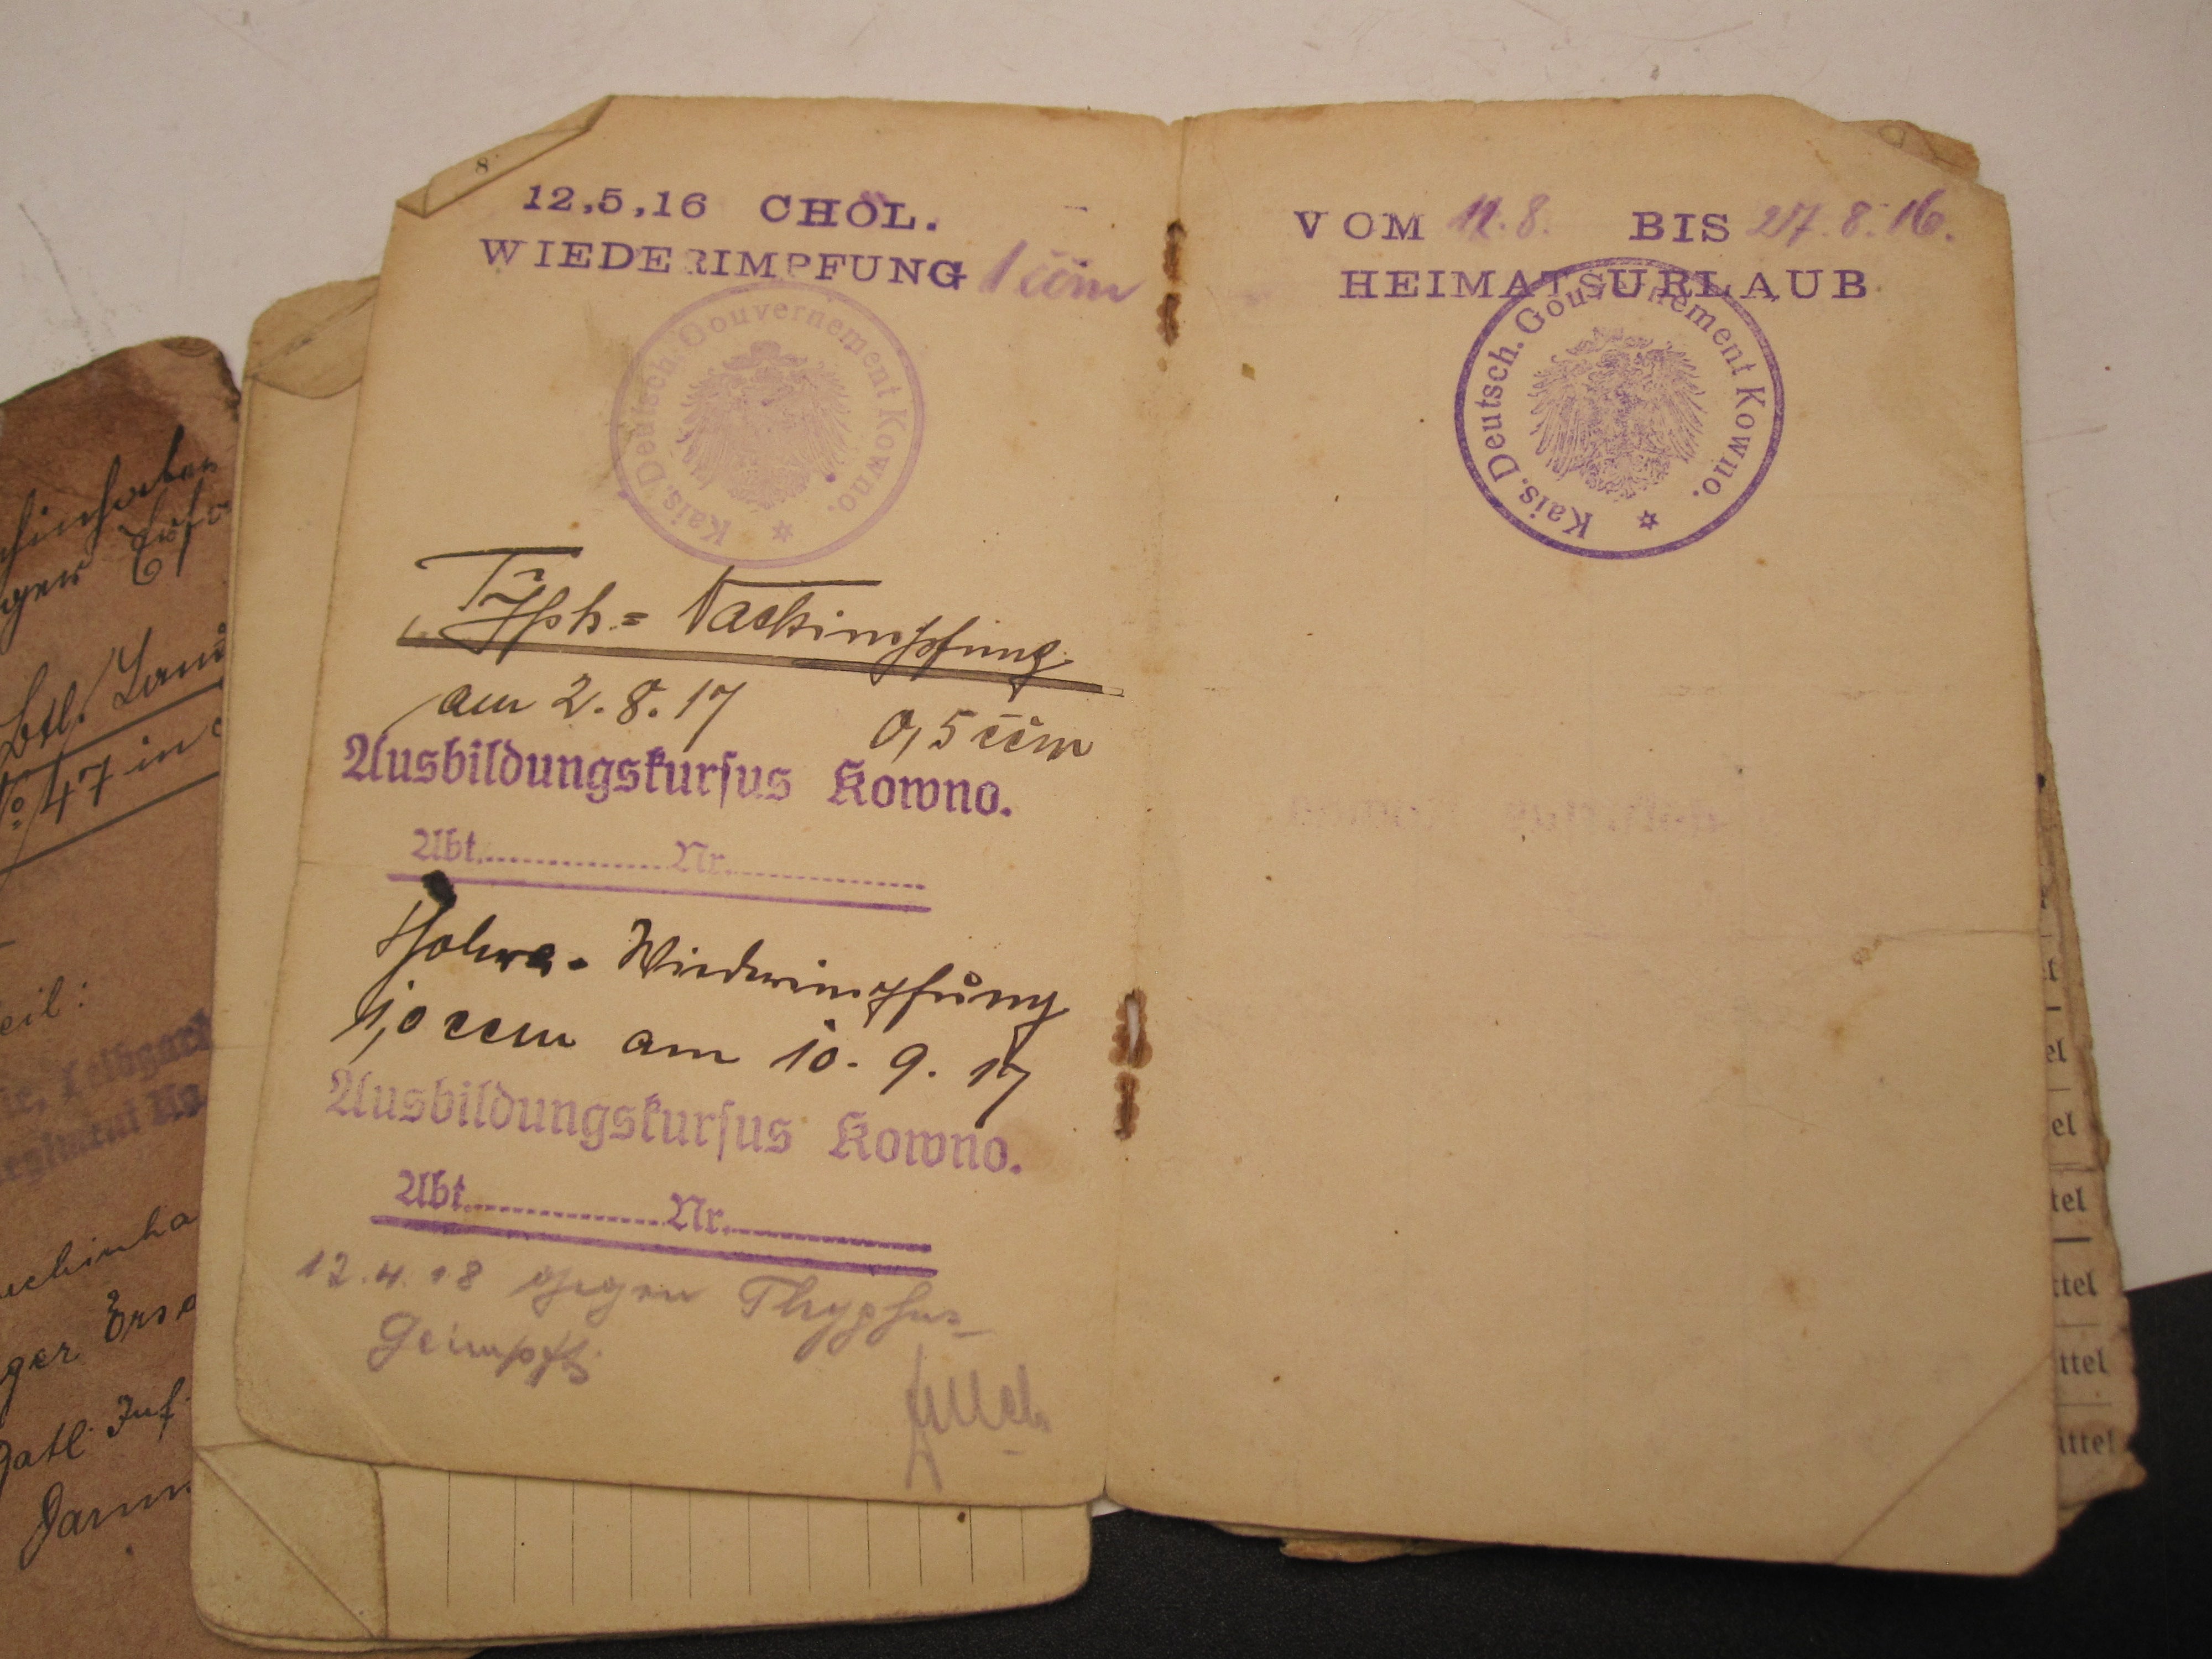 8
12,5,16 CHOL.
WIEDERIMPFUNG 1 ccm
Kais. Deutsch. Gouvernement Kowno.
Typh = Nachimpfung
am 2.8.17 0,5 ccm
Ausbildungskursus Kowno.
Abt. Nr.
Cholera - Wiederimpfung
1,0 ccm am 10. 9. 17
Ausbildungskursus Kowno.
Abt. Nr.
12.4.18 gegen Thyphus
Geimpft
VOM 12.8. BIS 27.8.16.
HEIMATSURLAUB
Kais. Deutsch. Gouvernement Kowno.
Btl.
No 47 in
eil:
ger Ers
Batl. Inf.
tel
ttel
ttel
ittel